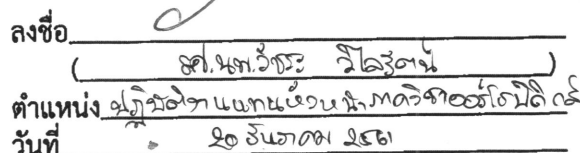 ลงชื่อ
( รศ.นพ.วัชระ วิไลรัตน์ )
ตำแหน่ง ปฏิบัติงานแทนหัวหน้าภาควิชาออร์โธปิดิกส์
วันที่ 20 ธันวาคม 2561